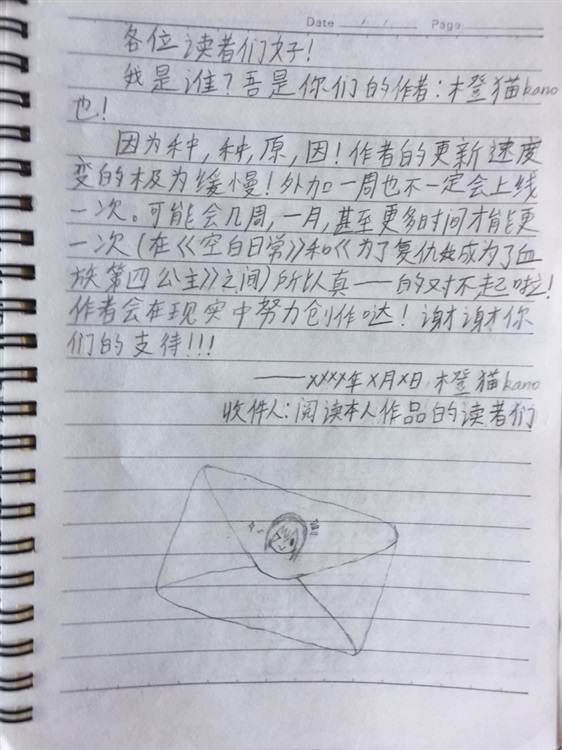 Date / / Page
各位读者们好!
我是谁?吾是你们的作者:橙猫kano
也!
因为种,种,原,因!作者的更新速度
变的极为缓慢!外加一周也不一定会上线
一次。可能会几周,一月,甚至更多时间才能更
一次(在《空白日常》和《为了复仇她成为了血
族第四公主》之间)所以真——的对不起啦!
作者会在现实中努力创作哒!谢谢你
们的支持!!!
——xxxx年x月x日,橙猫kano
收件人:阅读本人作品的读者们